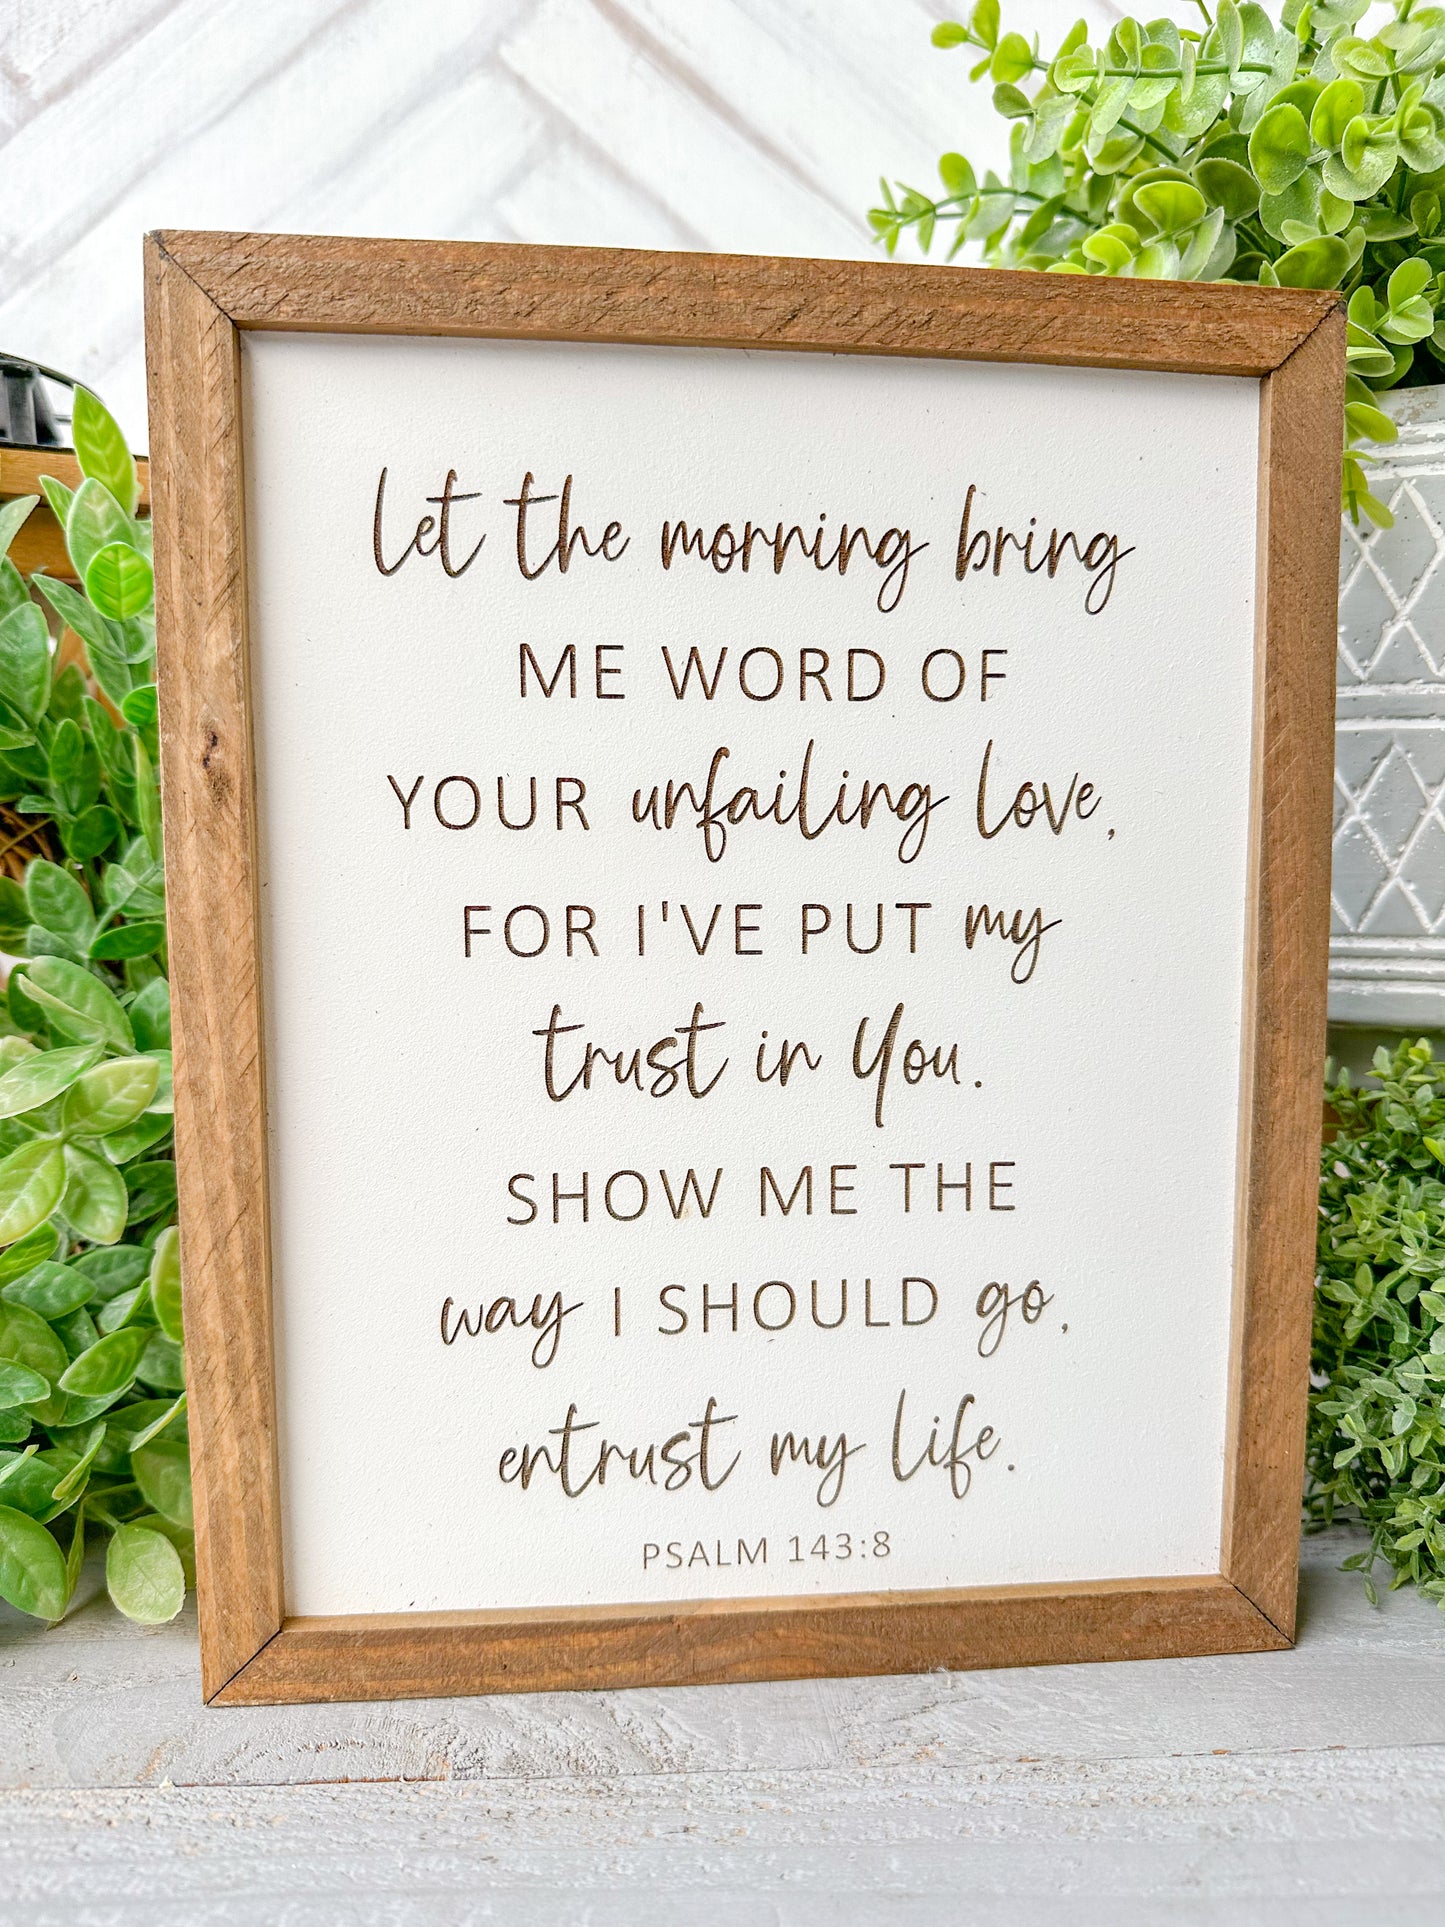 let the morning bring
ME WORD OF
YOUR unfailing love,
FOR I'VE PUT my
trust in You.
SHOW ME THE
way I SHOULD go,
entrust my life.
PSALM 143:8